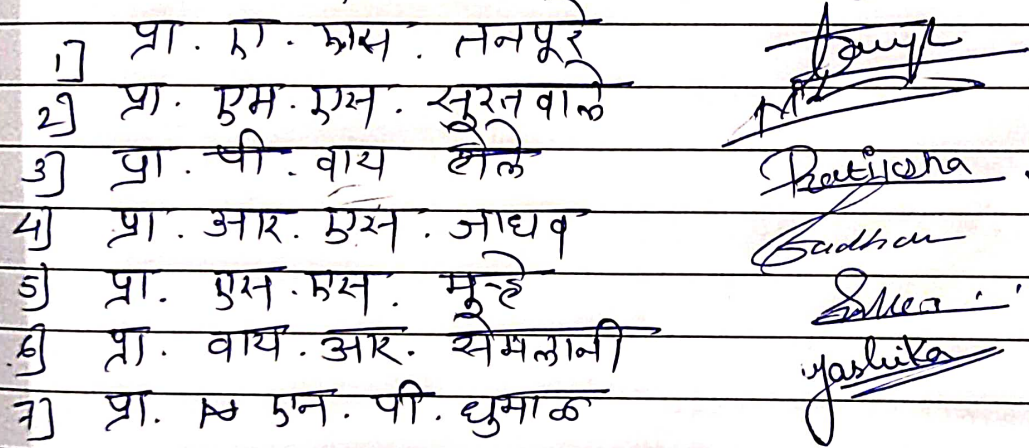 1] प्रा. ए. एस. तनपूरे
2] प्रा. एम. एस. सुरतवाले
3] प्रा. पी. वाय होले Pratijsha
4] प्रा. आर. एस. जाधव Jadhav
5] प्रा. एस. एस. मुन्हे
6] प्रा. वाय. आर. सेमलानी Yashika
7] प्रा. एन. पी. धुमाळ